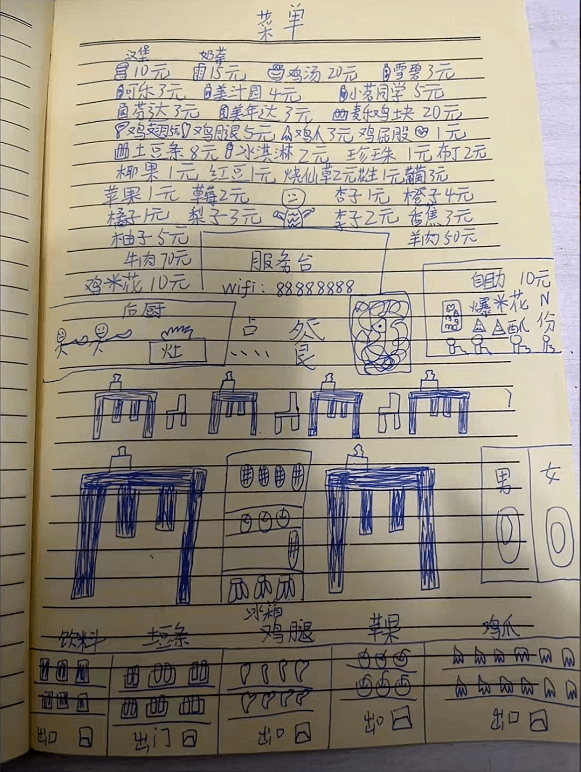 菜单
汉堡 奶茶
10元 15元 鸡汤 20元 雪碧 3元
可乐 3元 美汁园 4元 小茗同学 5元
芬达 3元 美年达 3元 麦乐鸡块 20元
鸡翅 鸡腿5元 3元 鸡屁股 1元
土豆条 8元 冰淇淋 2元 珍珠 1元 布丁 2元
椰果 1元 红豆 1元 烧仙草 2元 1元 3元
苹果 1元 草莓 2元 杏子 1元 橙子 4元
橘子 1元 梨子 3元 李子 2元 香蕉 3元
柚子 5元 羊肉 50元
牛肉 70元 服务台
鸡米花 10元 wifi: 88888888
自助 10元
爆米花 N
份
后厨
灶
点
男 女
冰箱
饮料 土豆条 鸡腿 苹果 鸡爪
出口 出门 出口 出口 出口